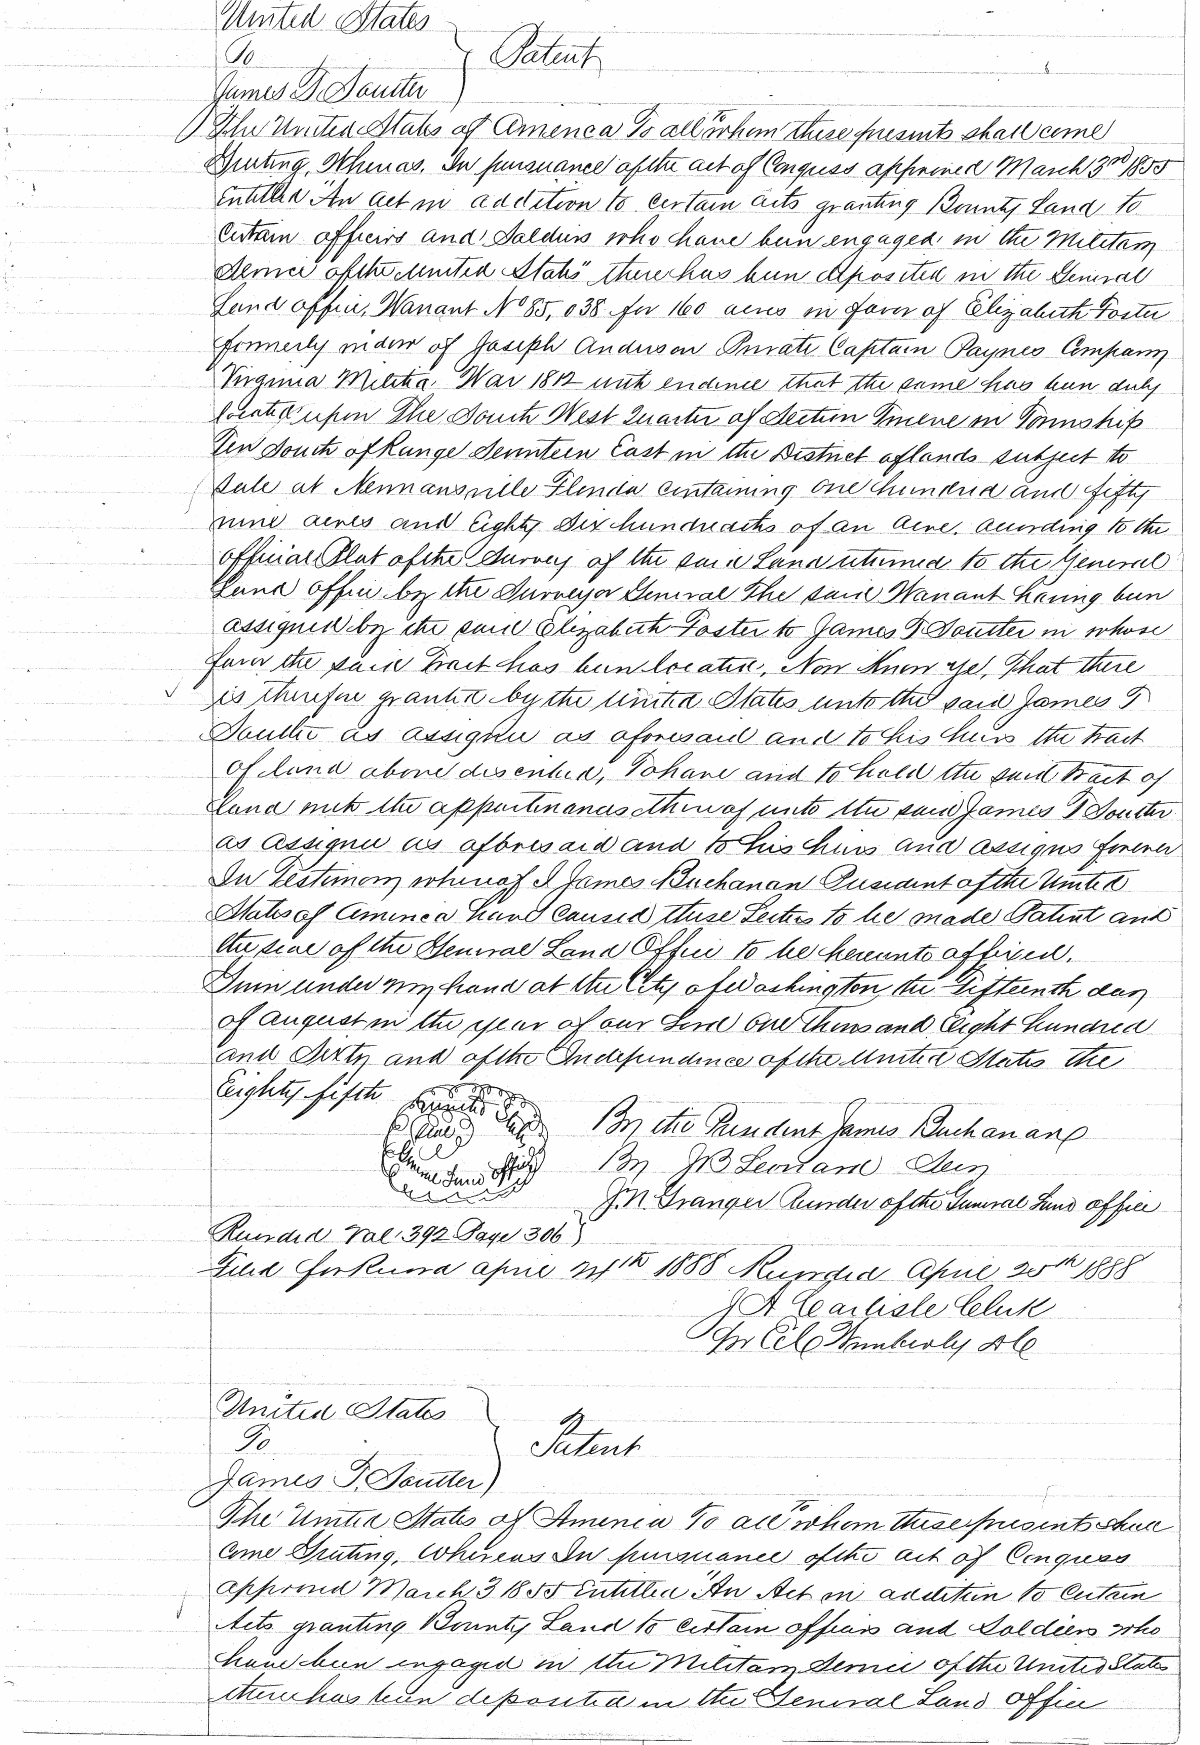 United States
To
Patent
James T. Soutter
The United States of America To all "whom these presents shall come
Greeting, Whereas, In pursuance of the act of Congress approved March 3rd 1855
entitled "An act in addition to certain acts granting Bounty Land to
certain officers and Soldiers who have been engaged in the Military
Service of the United States" there has been deposited in the General
Land office, Warrant No 85,038 for 160 acres in favor of Elizabeth Foster
formerly widow of Joseph Anderson Private Captain Paynes Company
Virginia Militia War 1812 with evidence that the same has been duly
located upon The South West Quarter of Section Twelve in Township
Ten South of Range Seventeen East in the District of lands subject to
sale at Newnansville Florida containing one hundred and fifty
nine acres and Eighty Six hundredths of an Acre. according to the
official Plat of the Survey of the said Land returned to the General
Land office by the Surveyor General The said Warrant having been
assigned by the said Elizabeth Foster to James T. Soutter in whose
favor the said Tract has been located, Now Know Ye, That there
is therefore granted by the United States unto the said James T
Soutter as assignee as aforesaid and to his heirs the tract
of land above described, To have and to hold the said tract of
land with the appurtenances thereof unto the said James T Soutter
as assignee as aforesaid and to his heirs and assigns forever
In Testimony whereof I James Buchanan President of the United
States of America have caused these Letters to be made Patent and
the seal of the General Land Office to be hereunto affixed.
Given under my hand at the City of Washington the Fifteenth day
of August in the year of our Lord One thousand Eight hundred
and Sixty and of the Independence of the United States the
Eighty fifth
By the President James Buchanan
By J B Leonard Secy
General Land Office
J. N. Granger Recorder of the General Land office
Recorded Vol. 392 Page 306
Filed for Record april 24th 1888 Recorded April 25th 1888
J A Carlisle Clerk
Per C. C. Wimberly DC
United States
To
Patent
James T. Soutter
The United States of America To all "whom these presents shall
come Greeting, Whereas In pursuance of the act of Congress
approved March 3 1855 Entitled "An Act in addition to Certain
Acts granting Bounty Land to certain officers and Soldiers who
have been engaged in the Military Service of the United States
there has been deposited in the General Land office